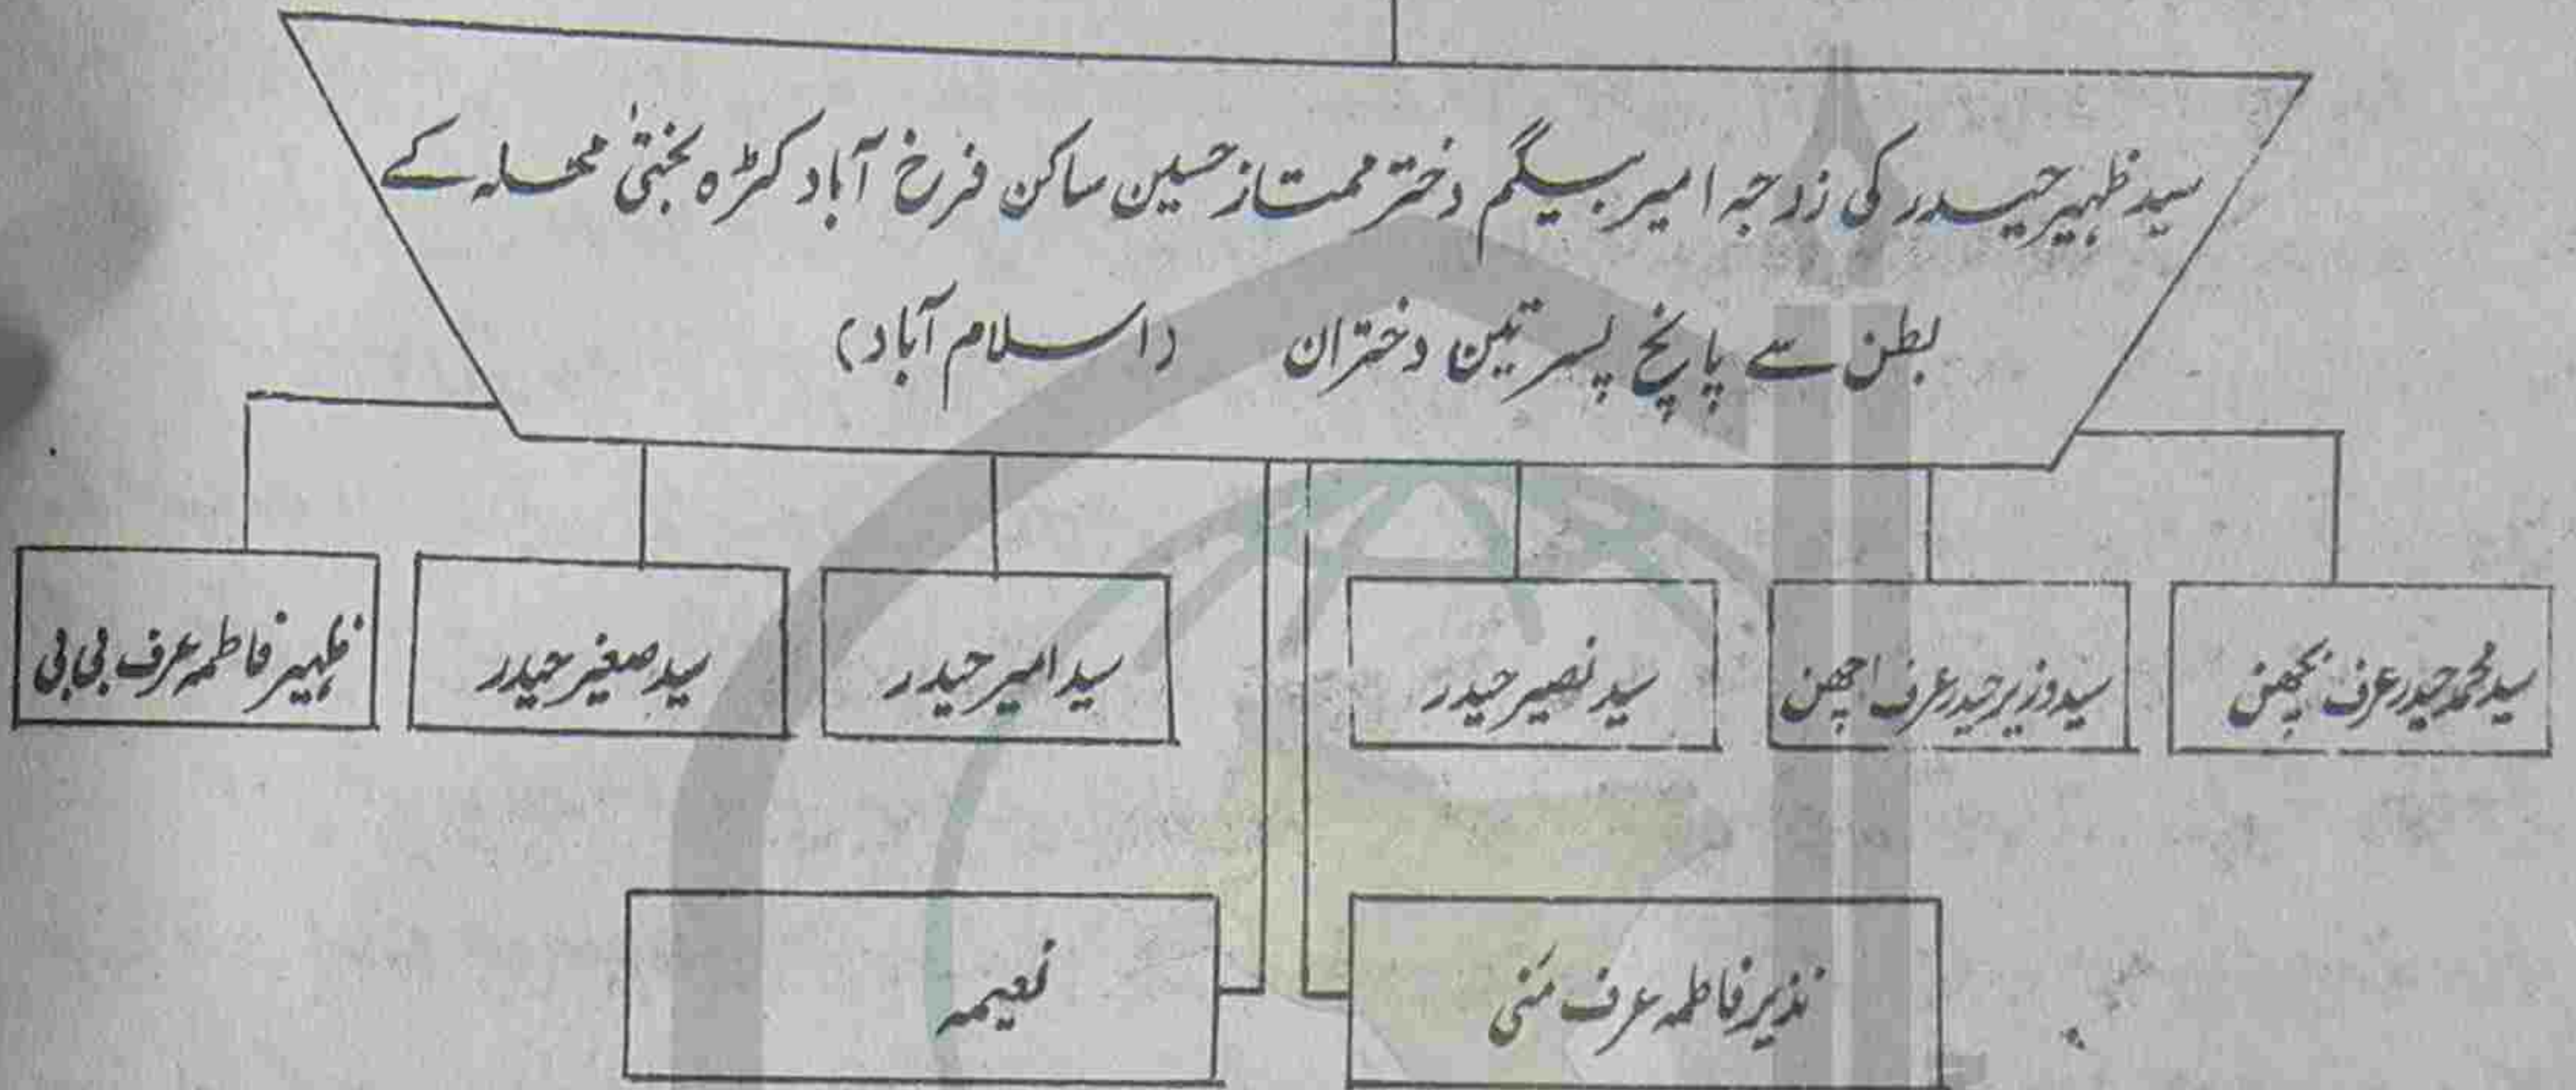 سید ظہیر حیدر کی زوجہ امیر بیگم دختر ممتاز حسین ساکن فرخ آباد کٹرہ بخشی محلہ کے
بطن سے پانچ پسر تین دختران (اسلام آباد)
سید محمد حیدر عرف بچھن
سید وزیر حیدر عرف اچھن
سید نصیر حیدر
سید امیر حیدر
سید صغیر حیدر
ظہیر فاطمہ عرف بی بی
نذیر فاطمہ عرف منی
نعیمہ